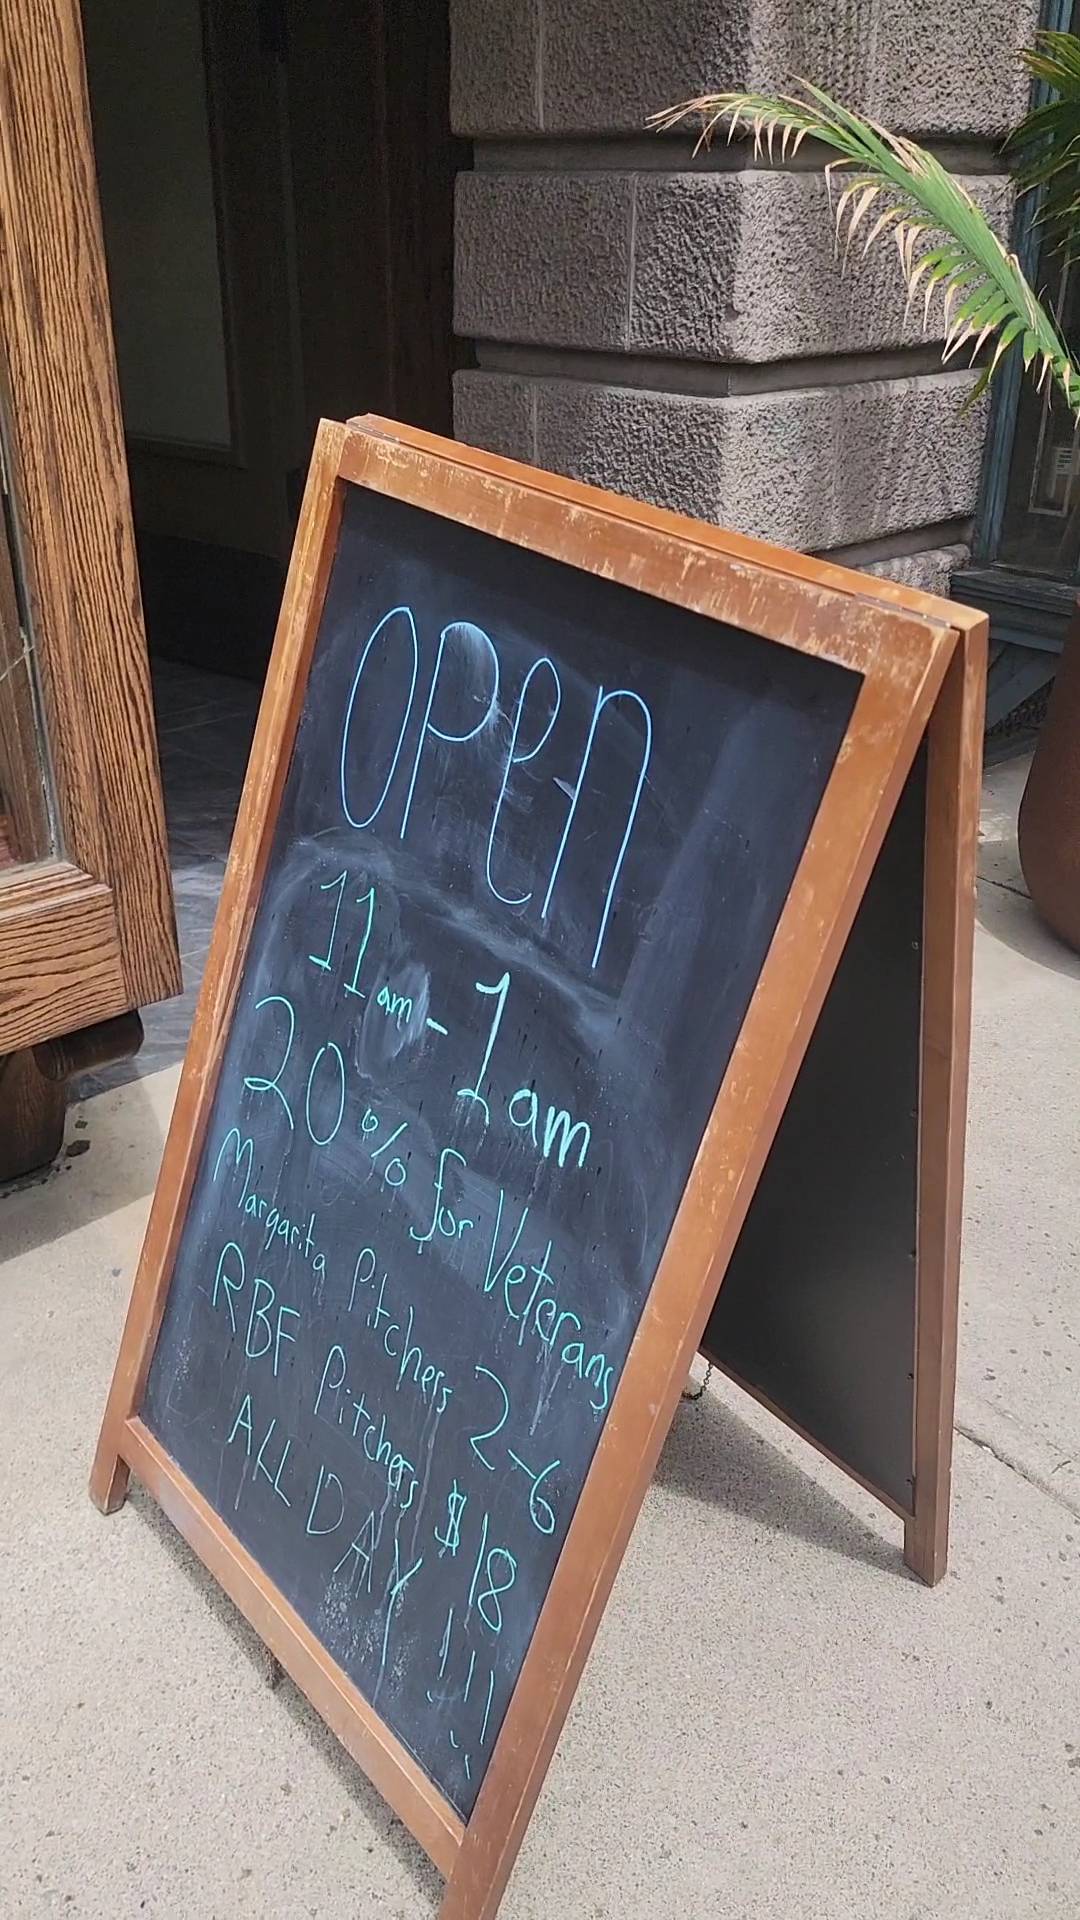 OPen
11am - 1am
20% for Veterans
Margarita Pitchers 2-6
RBF Pitchers $18
ALL DAY !!!